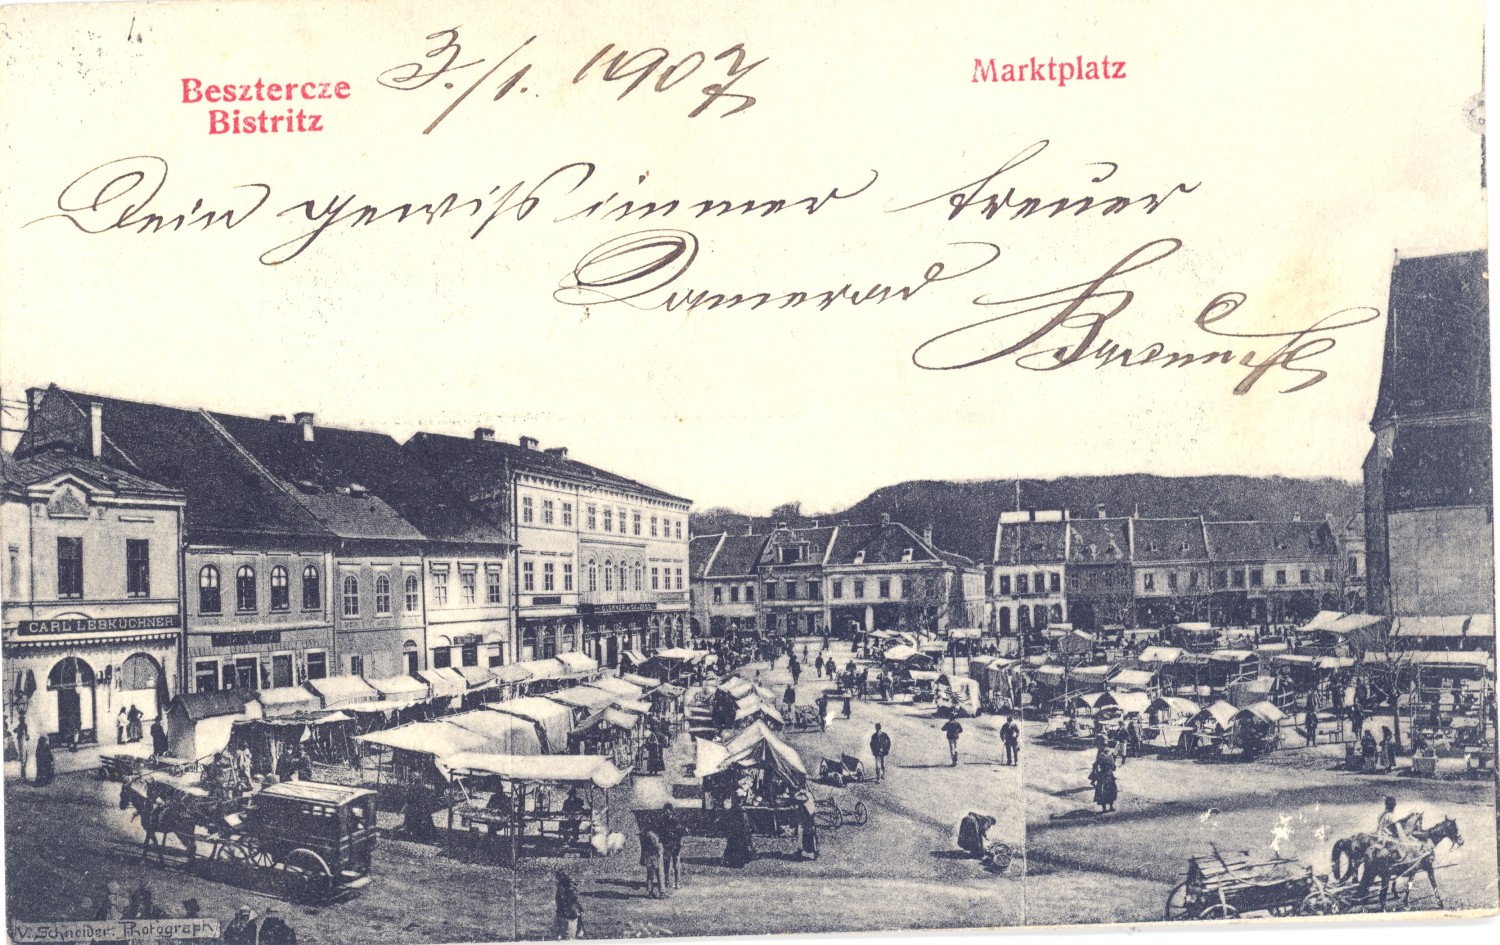 Besztercze
Bistritz
3./1. 1907
Marktplatz
Dein gewiß immer treuer
Kamerad
CARL LEBKÜCHNER
V. Schneider. Photograph.